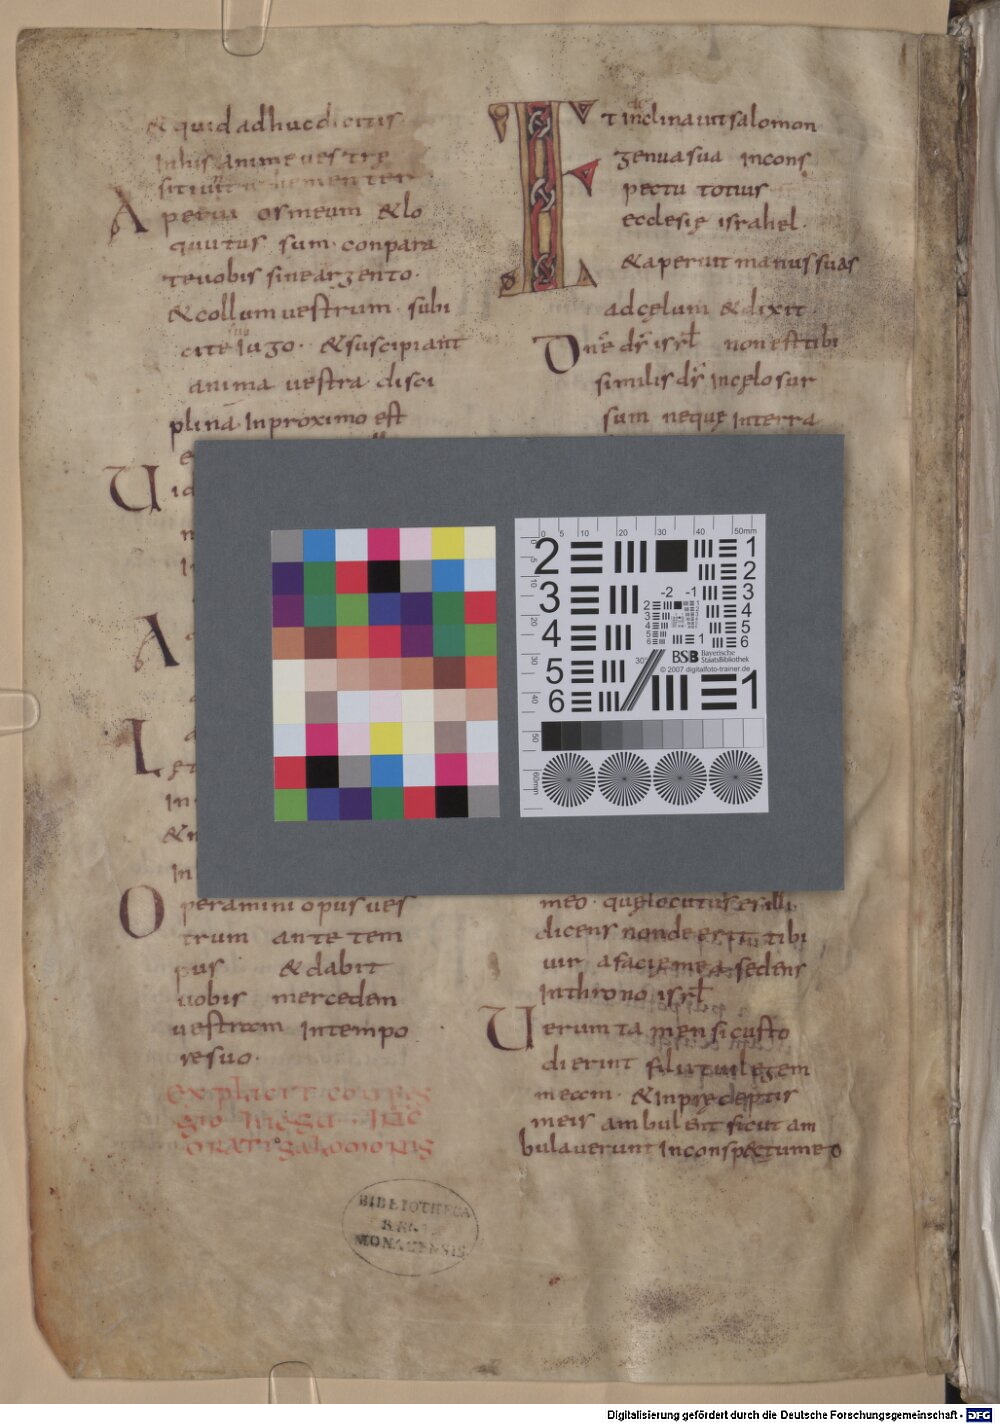 & quid adhuc dicitis
In his anime uestre
sitiunt uehementer
Aperui os meum & lo
quutus sum. conpara
te uobis sine argento.
& collum uestrum. subi
cite iugo. & suscipiant
anima uestra disci
plina In proximo est
U
A
L
&
In
O peramini opus ues
trum ante tem
pus & dabit
uobis mercedem
uestram In tempo
re suo.
explicit
orat salomonis
Et inclinauit salomon
genua sua in cons
pectu totius
ecclesię israhel.
& aperuit manus suas
ad cęlum & dixit
Dne ds isrl non est tibi
similis ds in cęlo sur
sum neque in terra
meo. quę locutus es illi.
dicens non deerit tibi
uir a facie mea. sedens
In throno isrl
Uerum tamen si custo
dierint filii tui legem
meam. & in pręceptis
meis ambulent sicut am
bulauerunt In conspectu meo
BIBLIOTHECA
REGIA
MONACENSIS
0 5 10 20 30 40 50mm
2 1
2
3 -2 -1 3
4 4
5
6
5 30° BSB Bayerische
Staatsbibliothek
© 2007 digitalfoto-trainer.de
6 1
Digitalisierung gefördert durch die Deutsche Forschungsgemeinschaft - DFG